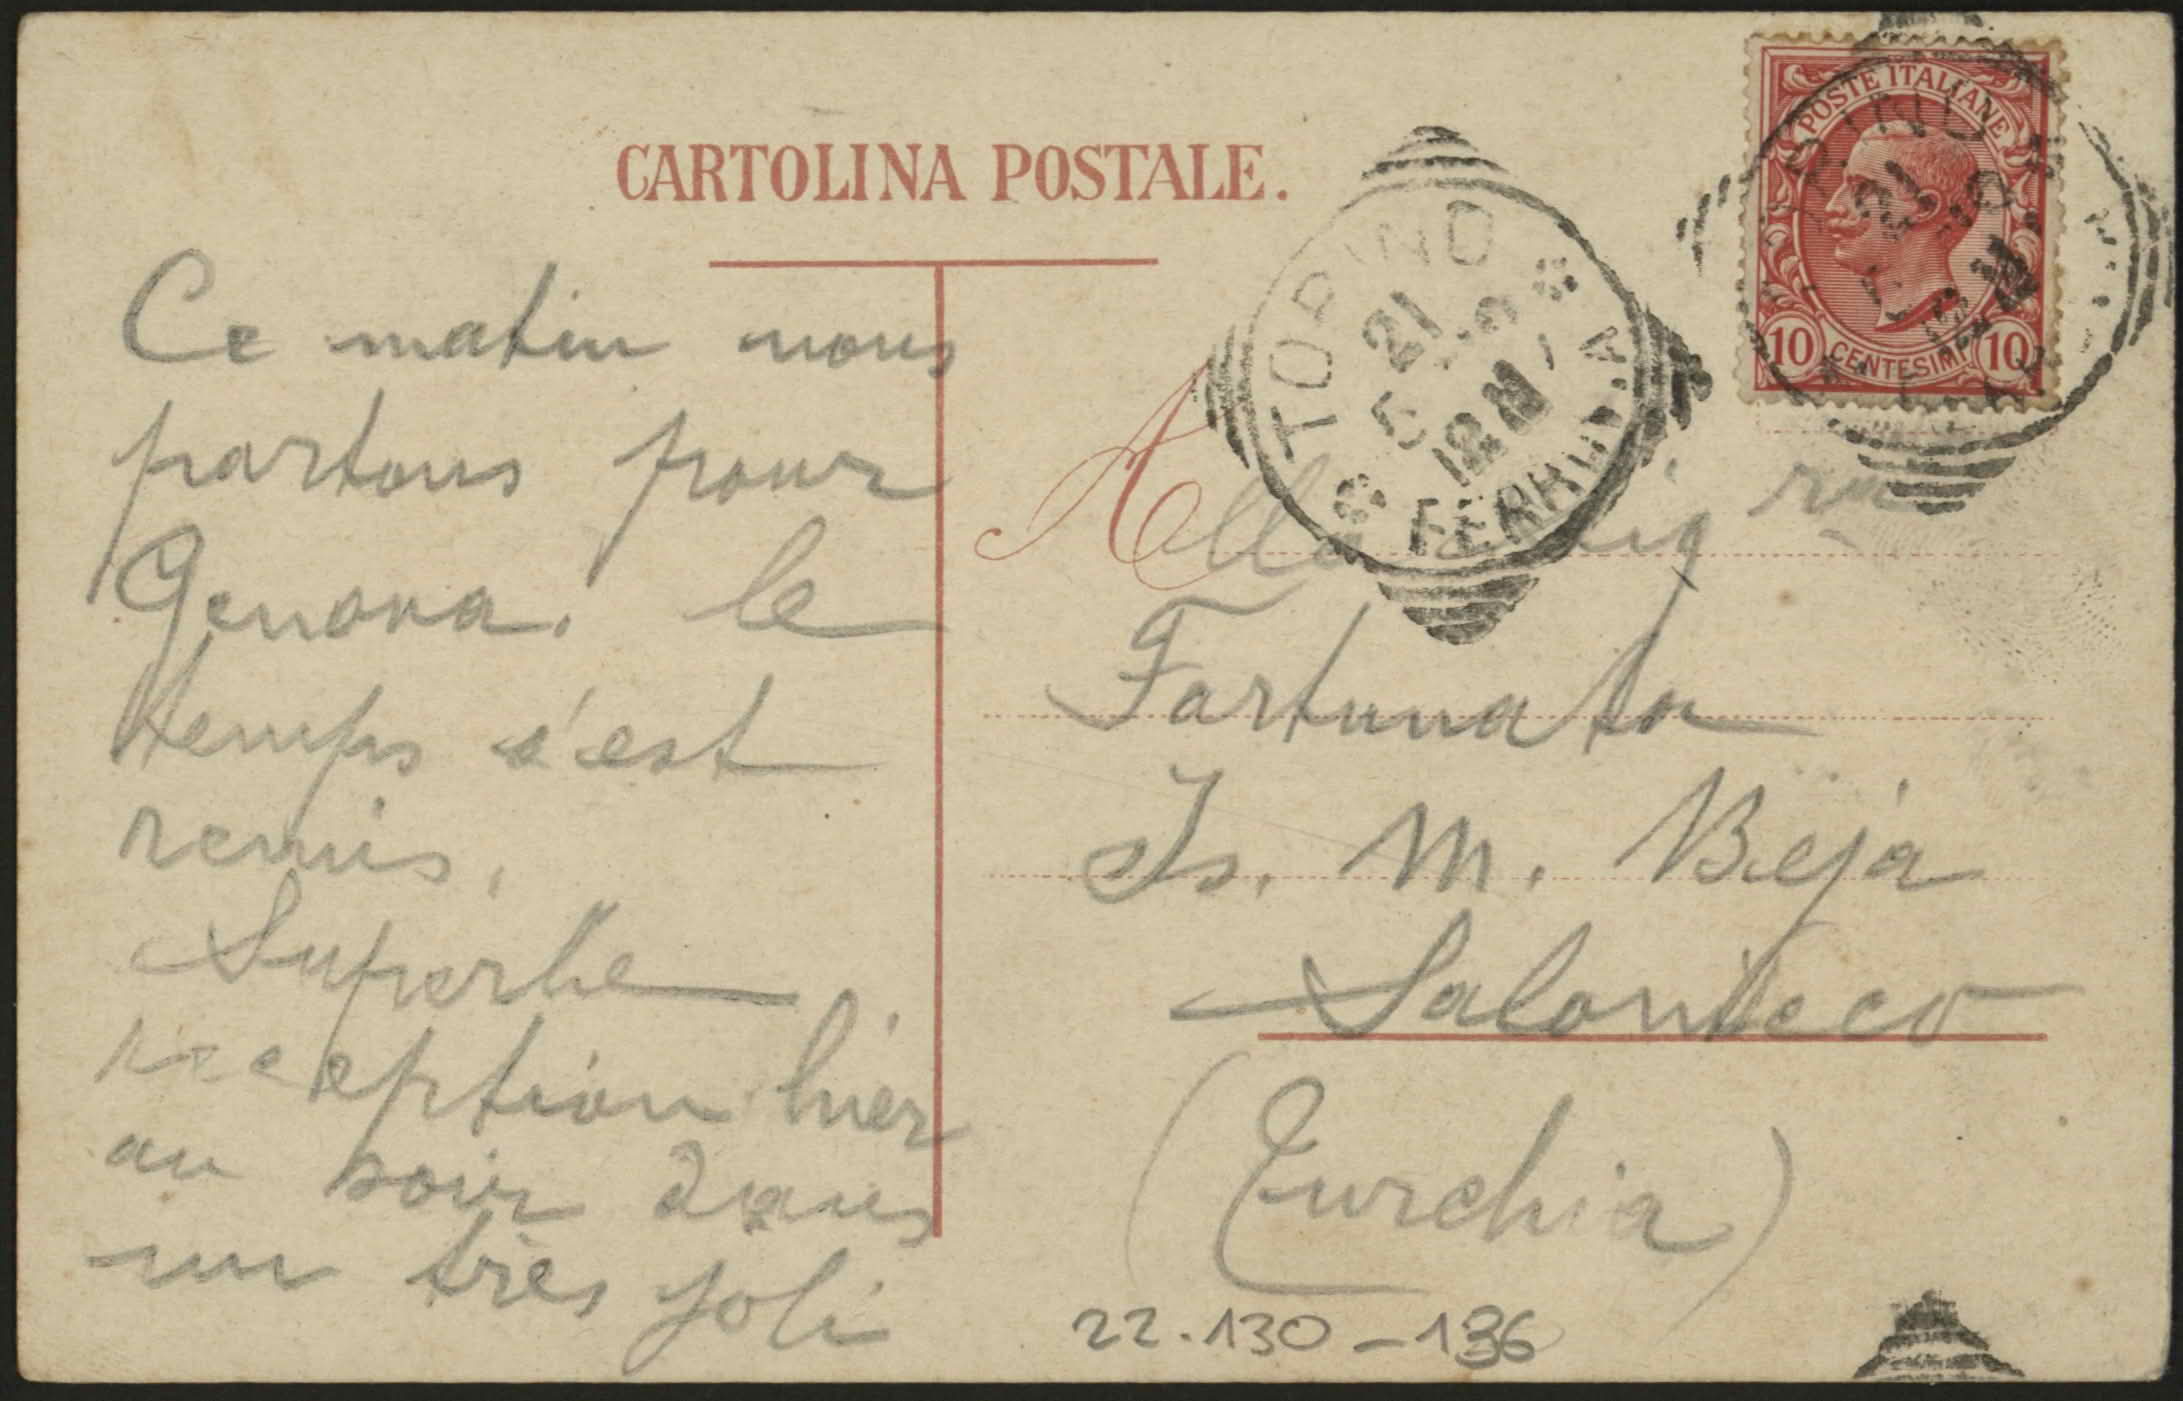 CARTOLINA POSTALE.
POSTE ITALIANE
10 CENTESIMI 10
TORINO
21
5
12 M
FERROVIA
Ce matin nous
partons pour
Genova. le
temps s'est
remis.
Superbe
reception hier
au soir dans
un très joli
Alla Sig ra
Fortunata
Is. M. Beja
Salonicco
(Turchia)
22.130-136